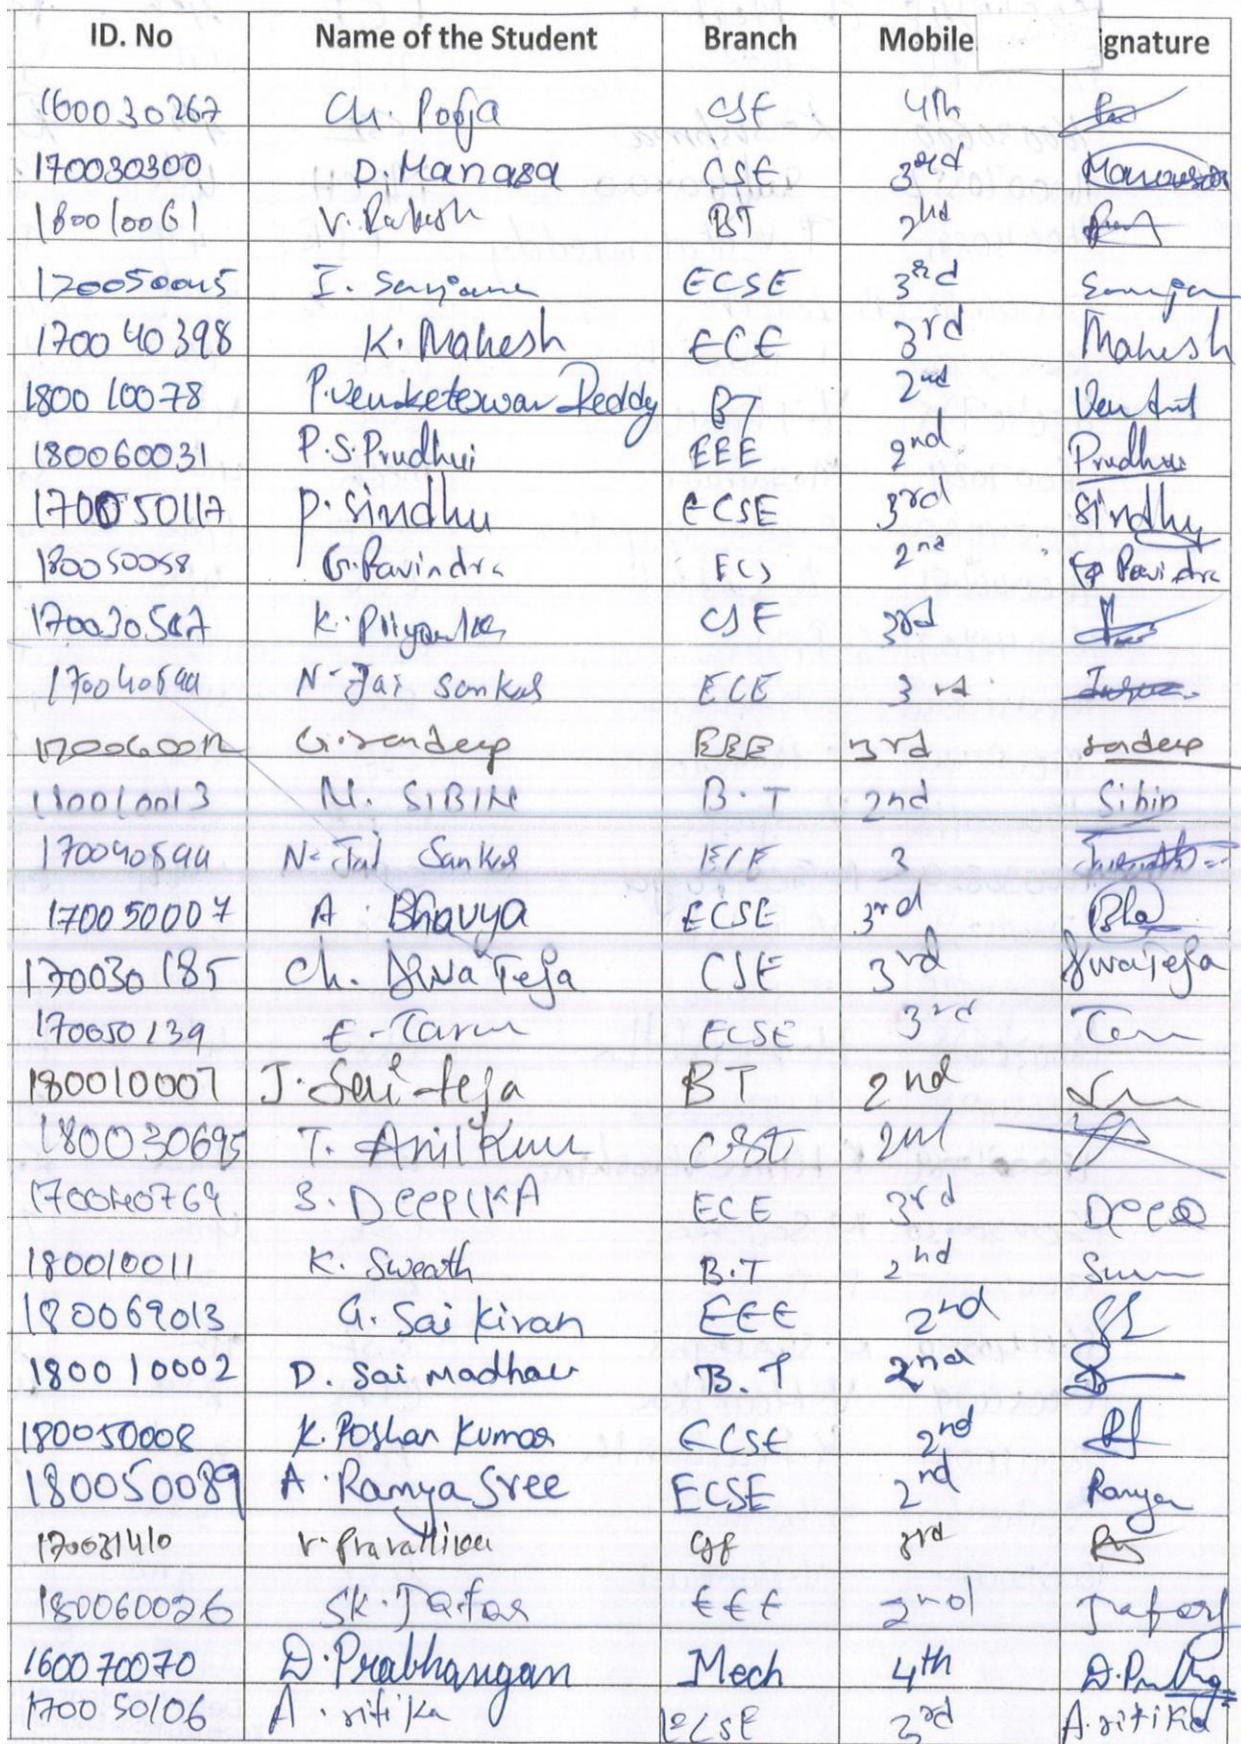 ID. No Name of the Student Branch Mobile ignature
160030267 Ch. Pooja CSE 4th
170030300 D. Manasa CSE 3rd Manasa
180010061 V. Rakesh BT 2nd
170050045 I. Sanjana ECSE 3rd Sanjan
170040398 K. Mahesh ECE 3rd Mahesh
180010078 P. Venketeswar Reddy BT 2nd
180060031 P.S. Prudhvi EEE 2nd Prudhvi
170050117 P. Sindhu ECSE 3rd Sindhu
180050058 G. Ravindra ECS 2nd Ravindra
170030567 K. Priyanka CSE 3rd
170040544 N. Jai Sankar ECE 3rd
170060012 G. Sandeep EEE 3rd Sandeep
180010013 M. SIBIN B.T 2nd Sibin
170040544 N. Jai Sankar ECE 3
170050007 A. Bhavya ECSE 3rd Bha
170030185 Ch. Siva Teja CSE 3rd SivaTeja
170050139 E. Tarun ECSE 3rd
180010007 J. Sai teja BT 2nd
180030695 T. Anil Kum CSE 2nd
170040769 S. DEEPIKA ECE 3rd
180010011 K. Sweath B.T 2nd
180069013 G. Sai Kiran EEE 2nd
180010002 D. Sai Madhav B.T 2nd
180050008 K. Roshan Kumar ECSE 2nd
180050089 A. Ramya Sree ECSE 2nd Ramya
170031410 V. Pravallika CSE 3rd
180060026 SK. Jafar EEE 2nd Jafar
160070070 D. Prabhangan Mech 4th
170050106 A. ritika ECSE 3rd A. ritika